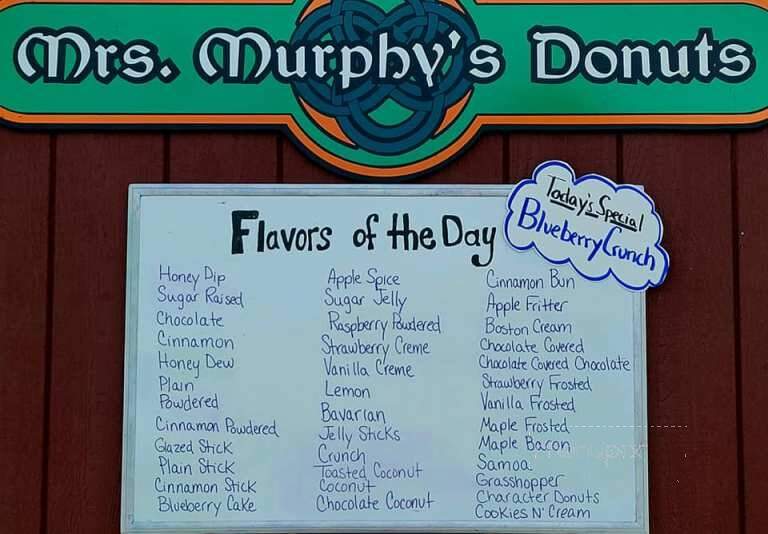 Mrs. Murphy's Donuts
Today's Special
Blueberry Crunch
Flavors of the Day
Honey Dip
Sugar Raised
Chocolate
Cinnamon
Honey Dew
Plain
Powdered
Cinnamon Powdered
Glazed Stick
Plain Stick
Cinnamon Stick
Blueberry Cake
Apple Spice
Sugar Jelly
Raspberry Powdered
Strawberry Creme
Vanilla Creme
Lemon
Bavarian
Jelly Sticks
Crunch
Toasted Coconut
Coconut
Chocolate Coconut
Cinnamon Bun
Apple Fritter
Boston Cream
Chocolate Covered
Chocolate Covered Chocolate
Strawberry Frosted
Vanilla Frosted
Maple Frosted
Maple Bacon
Samoa
Grasshopper
Character Donuts
Cookies N' Cream